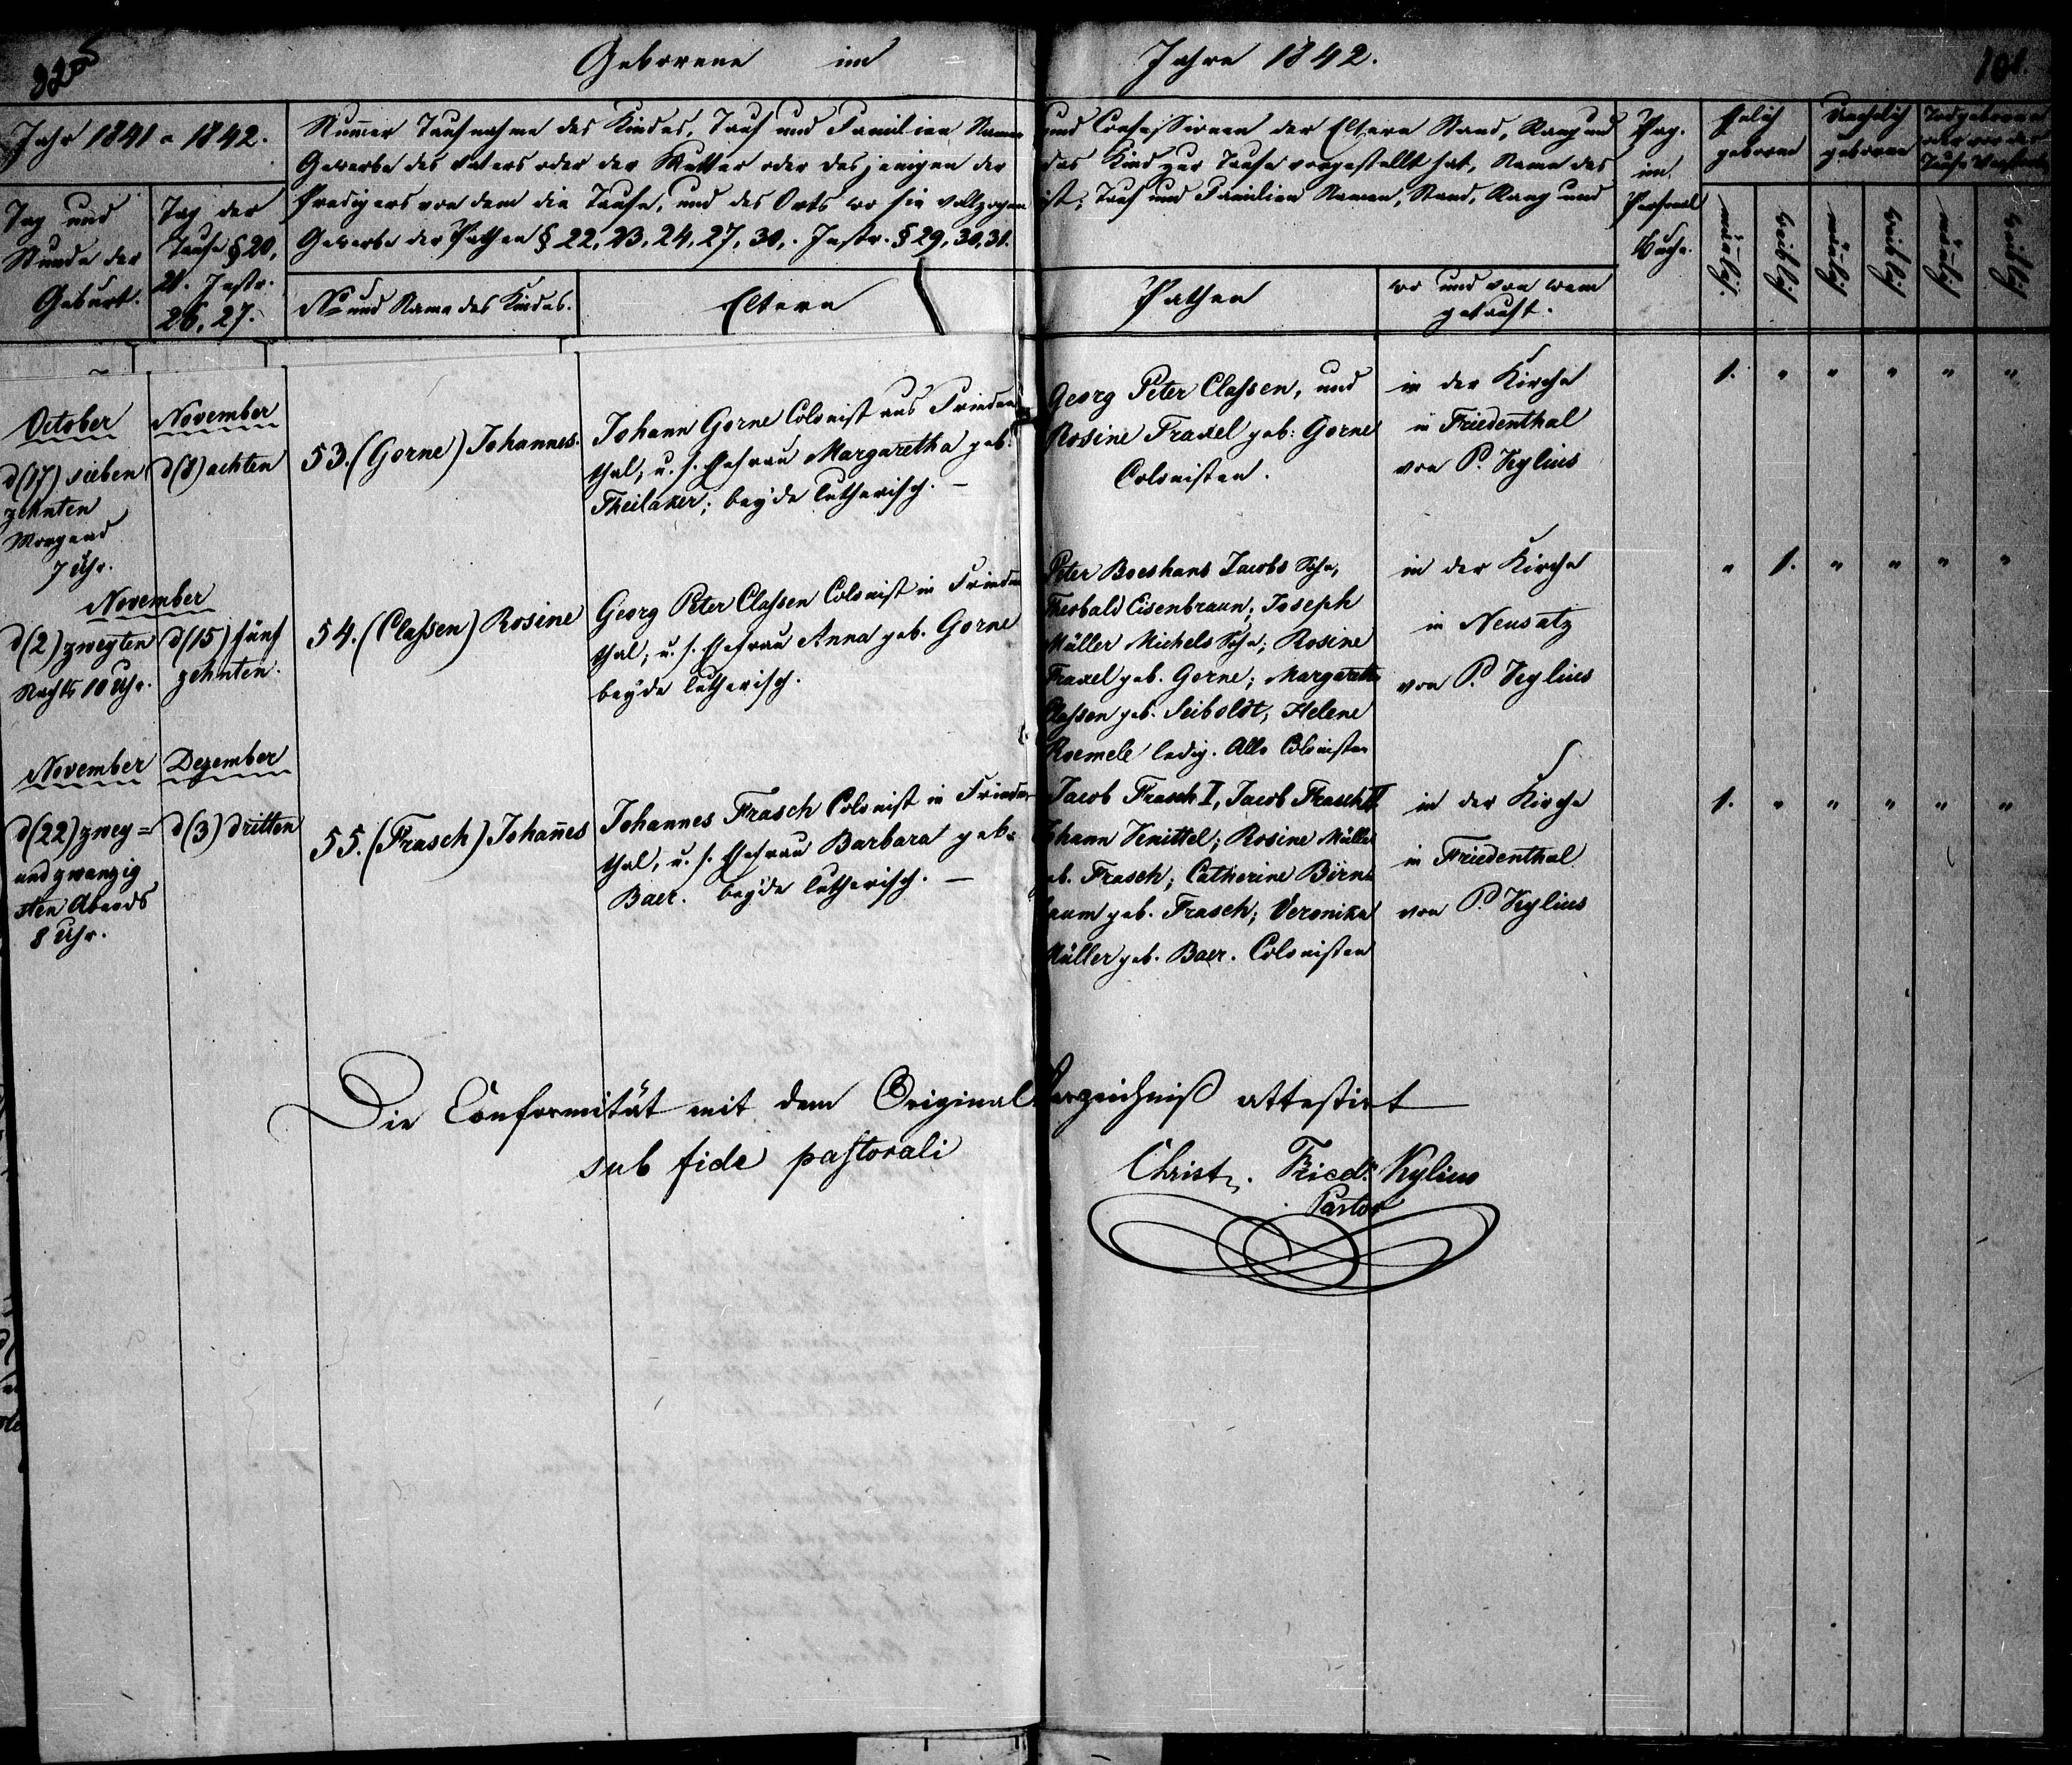 Geborene im Jahre 1842.
101.
Jahr 1841 a 1842.
Tag und
Stunde der
Geburt.
Tag der
Taufe § 20,
21. Instr.
26, 27.
Num̅er Taufnahme des Kindes, Tauf und Familien Namen und Confessionen der Eltern Stand, Rang und
Gewerbe des Vaters oder der Mutter oder desjenigen der das Kind zur Taufe vorgestellt hat, Name des
Predigers von dem die Taufe, und des Orts wo sie vollzogen ist, Tauf und Familien Namen, Stand, Rang und
Gewerbe der Pathen § 22, 23, 24, 27, 30,. Instr. § 29, 30, 31.
No und Name des Kindes.
Eltern
Pathen
wo und von wem
getauft.
Pag.
im
Personal
Buche.
Ehelich
geboren
Unehelich
geboren
Todgeborene
oder vor der
Taufe Verstorb.
män̅lich.
weiblich
män̅lich
weiblich
män̅lich
weiblich
October
d (17) sieben
zehnten
Morgens
7 Uhr.
November
d (8) achten
53. (Gorne) Johannes.
Johann Gorne Colonist aus Frieden
thal, u. s. Ehefrau Margaretha geb.
Theilaker; beyde lutherisch. –
Georg Peter Claßen, und
Rosine Traxel geb: Gorne
Colonisten.
in der Kirche
in Friedenthal
von P. Kylius
1. " " " " "
November
d (2) zweyten
Nachts 10 Uhr.
d (15) fünf
zehnten.
54. (Claßen) Rosine
Georg Peter Claßen Colonist in Frieden
thal, u. s. Ehefrau Anna geb. Gorne
beyde lutherisch.
Peter Boeshans Jacobs Sohn,
Theobald Eisenbraun; Joseph
Müller Michels Sohn; Rosine
Traxel geb. Gorne; Margareth
Claßen geb. Seiboldt; Helene
Roemele ledig. Alle Colonisten
in der Kirche
in Neusatz
von P. Kylius
" 1. " " " "
November
d (22) zwey=
und zwanzig
sten Abends
8 Uhr.
Dezember
d (3) dritten
55. (Frasch) Johan̅es
Johannes Frasch Colonist in Frieden
thal, u. s. Ehefrau Barbara geb:
Baer. beyde lutherisch. –
Jacob Frasch I, Jacob Frasch II
Johann Knittel; Rosine Müller
geb. Frasch; Catherine Birn
baum geb. Frasch; Veronika
Müller geb. Baer. Colonisten
in der Kirche
in Friedenthal
von P. Kylius
1. " " " " "
Die Conformität mit dem Original Verzeichniß attestirt
sub fide pastorali
Christ. Friedr. Kylius
Pastor